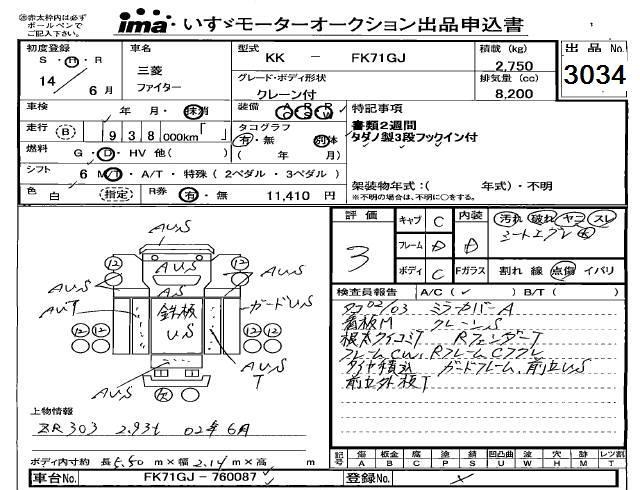 ㊟赤太枠内は必ず
ボールペンで
ご記入下さい。
ima いすゞモーターオークション出品申込書
初度登録
S・H・R
14 6月
車名
三菱
ファイター
型式
KK － FK71GJ
グレード・ボディ形状
クレーン付
積載 (kg)
2,750
排気量 (cc)
8,200
出品No.
3034
車検 年 月・抹消
装備 A/C P/S P/W
走行 (B) 938000km「 」
タコグラフ
有・無 別体
( 年 月)
燃料 G・D・HV 他( )
特記事項
書類2週間
タダノ製3段フックイン付
架装物年式:( 年式)・不明
※不明の場合は、不明に○をする。
シフト 6 M/T・A/T・特殊(2ペダル・3ペダル)
色 白 (指定) R券 有・無 11,410 円
評価
3
キャブ C
フレーム D
ボディ C
内装 D
汚れ 破れ ヤコ スレ
シートエグレ 大
Fガラス 割れ 線 点傷 イバリ
検査員報告 A/C(✓) B/T( )
タコ02/03 ミラーカバーA
看板M クレーンS
根太クイコミT RフェンダーT
タイヤ積込 ガードフレーム、前立US
前立外板T
12 AUS 12
AUS AUS AUS
AS
AUT 鉄板 US ガードUS
AUS AUS T
AUS 欠
上物情報
ZR303 2.93t 02年6月
ボディ内寸約 長5.50m×幅2.14m×高 m
車台No. FK71GJ－760087
登録No.
記号 傷A 板金B 腐C 塗P 錆S 凹凸曲U 波W 穴H 跡M レツ割T